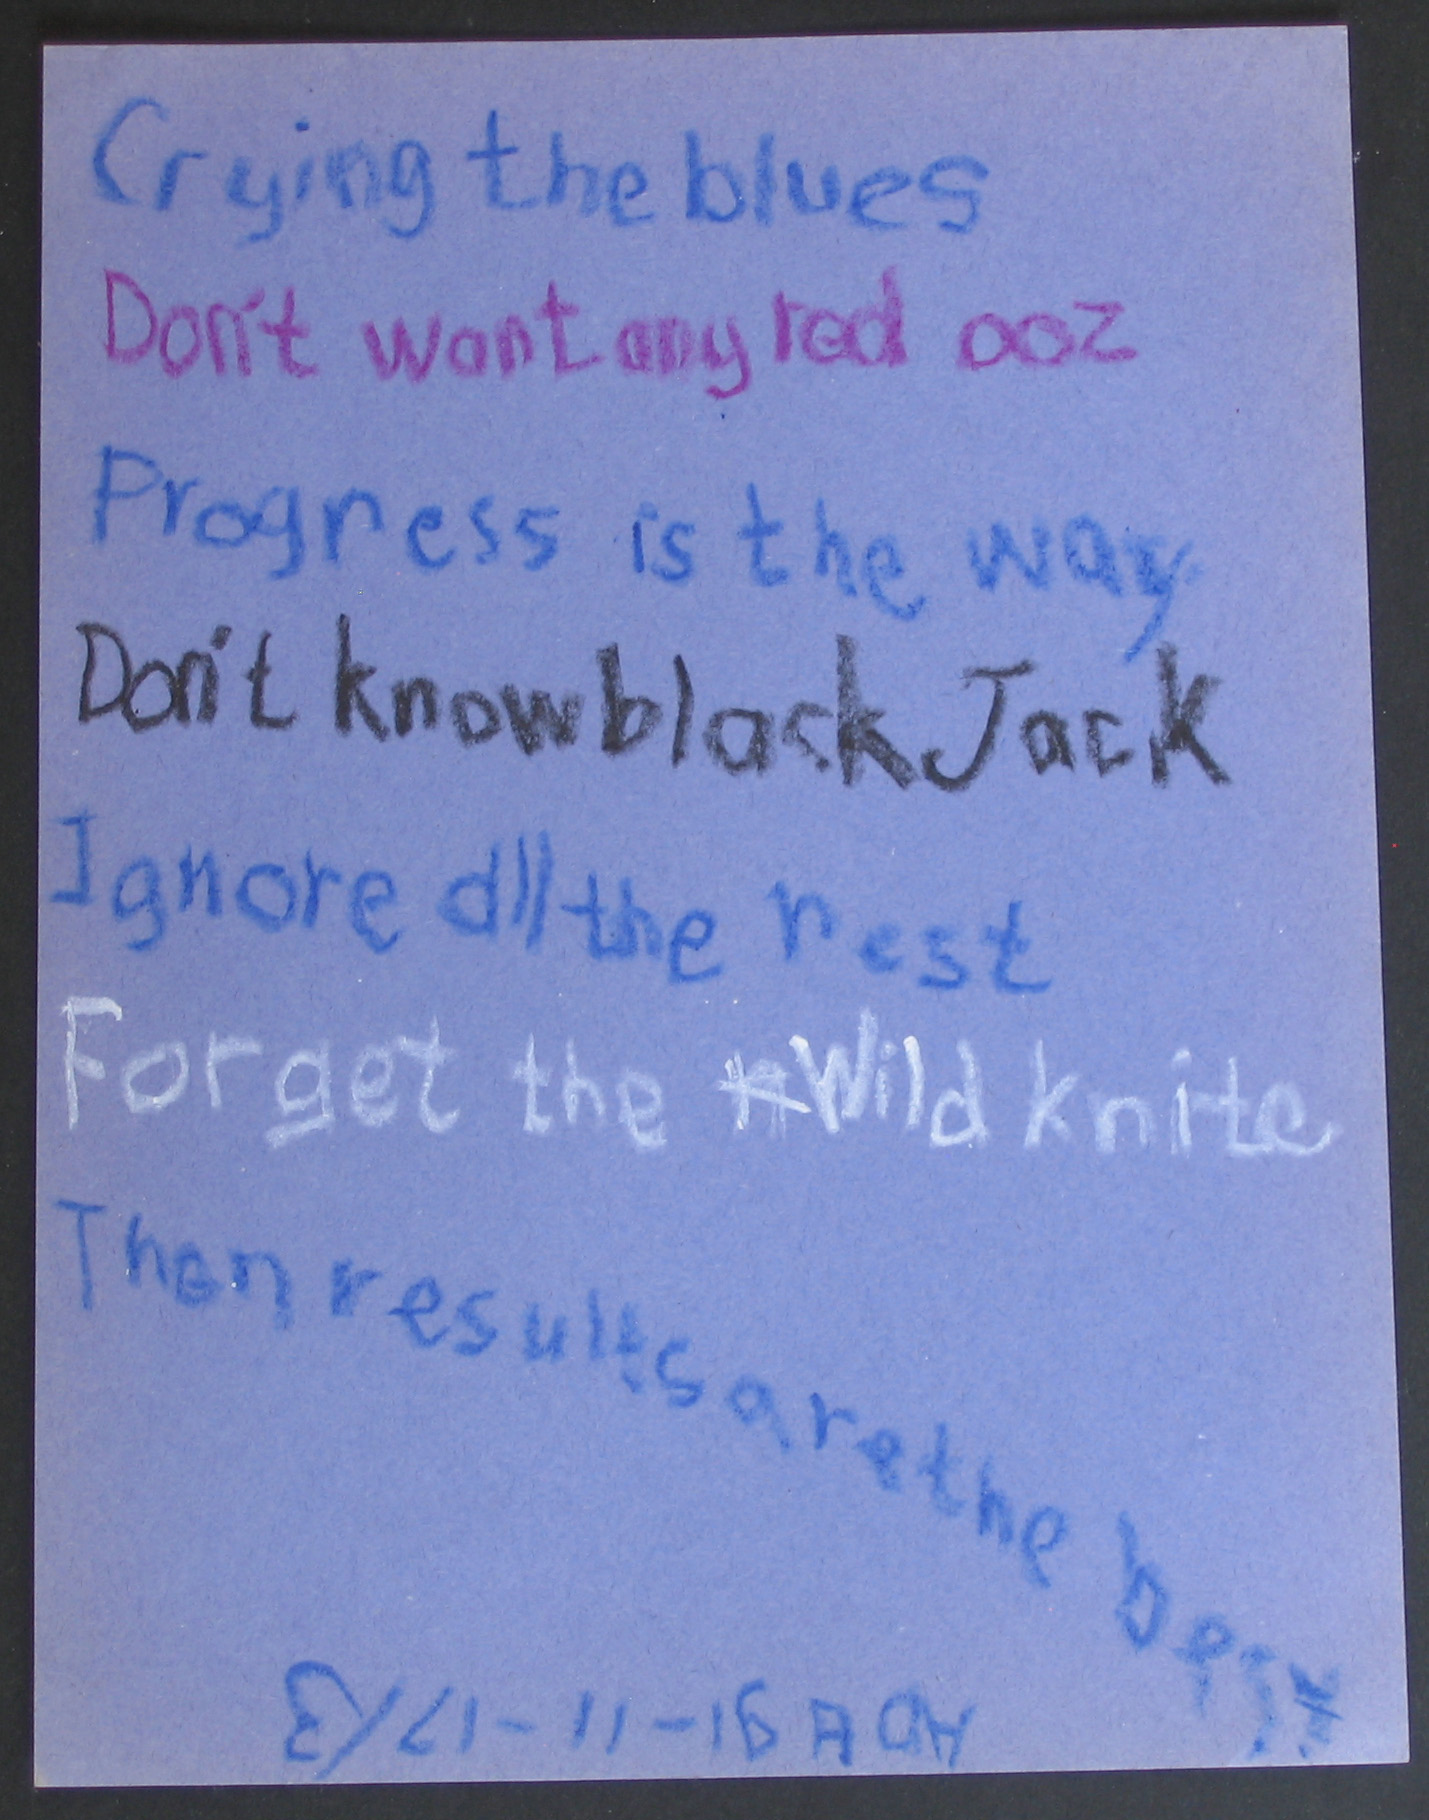 Crying the blues
Don't want any red ooz
Progress is the way
Don't know black Jack
Ignore all the rest
Forget the Wild knite
Then results are the best